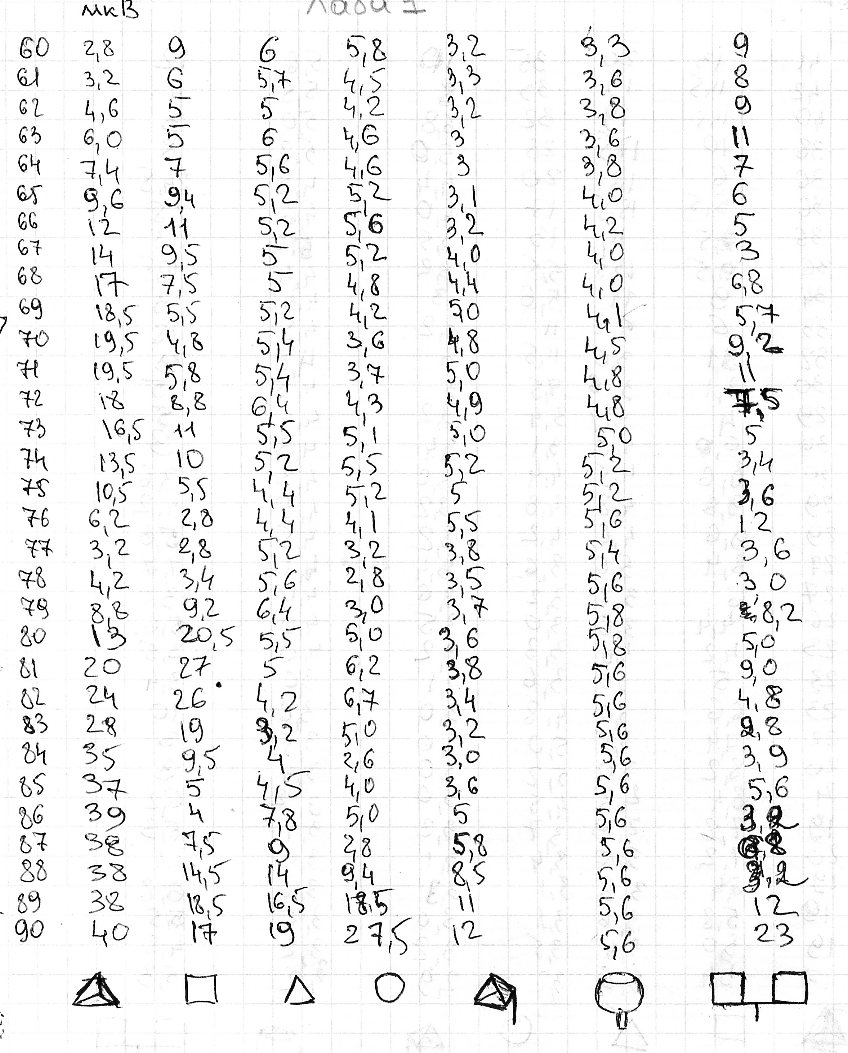 мкВ Лаба 1
60 2,8 9 6 5,8 3,2 3,3 9
61 3,2 6 5,7 4,5 3,3 3,6 8
62 4,6 5 5 4,2 3,2 3,8 9
63 6,0 5 6 4,6 3 3,6 11
64 7,4 7 5,6 4,6 3 3,8 7
65 9,6 9,4 5,2 5,2 3,1 4,0 6
66 12 11 5,2 5,6 3,2 4,2 5
67 14 9,5 5 5,2 4,0 4,0 3
68 17 7,5 5 4,8 4,4 4,0 6,8
69 18,5 5,5 5,2 4,2 5,0 4,1 5,7
70 19,5 4,8 5,4 3,6 4,8 4,5 9,2
71 19,5 5,8 5,4 3,7 5,0 4,8 11
72 18 8,8 6,4 4,3 4,9 4,8 7,5
73 16,5 11 5,5 5,1 5,0 5,0 5
74 13,5 10 5,2 5,5 5,2 5,2 3,4
75 10,5 5,5 4,4 5,2 5 5,2 3,6
76 6,2 2,8 4,4 4,1 5,5 5,6 12
77 3,2 2,8 5,2 3,2 3,8 5,4 3,6
78 4,2 3,4 5,6 2,8 3,5 5,6 3,0
79 8,8 9,2 6,4 3,0 3,7 5,8 8,2
80 13 20,5 5,5 5,0 3,6 5,8 5,0
81 20 27 5 6,2 3,8 5,6 9,0
82 24 26 4,2 6,7 3,4 5,6 4,8
83 28 19 3,2 5,0 3,2 5,6 2,8
84 35 9,5 4 2,6 3,0 5,6 3,9
85 37 5 4,5 4,0 3,6 5,6 5,6
86 39 4 7,8 5,0 5 5,6 3,2
87 38 7,5 9 2,8 5,8 5,6
88 38 14,5 14 9,4 8,5 5,6
89 38 18,5 16,5 18,5 11 5,6 12
90 40 17 19 27,5 12 5,6 23